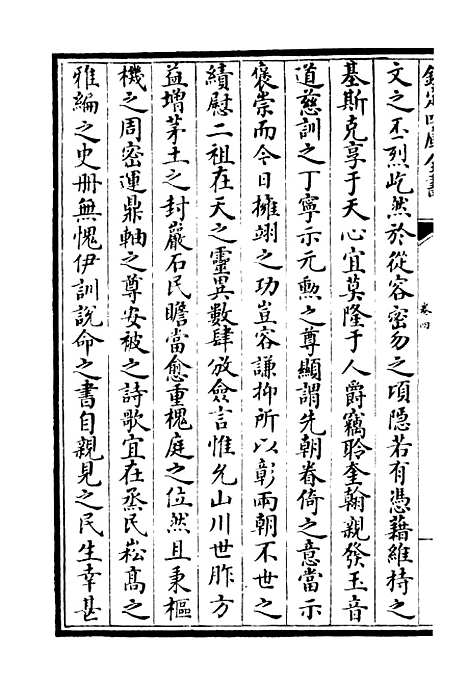 欽定四庫全書
卷四
文之丕烈屹然於從容密勿之頃隠若有憑藉維持之
基斯克享于天心宜莫隆于人爵竊聆奎翰親發玉音
道慈訓之丁寧示元勲之尊顯謂先朝眷倚之意當示
褒崇而今日擁翊之功豈容謙抑所以彰兩朝不世之
績慰二祖在天之靈異數肆放僉言惟允山川世胙方
益増茅土之封巖石民瞻當愈重槐庭之位然且秉樞
機之周密運鼎軸之尊安被之詩歌宜在烝民崧髙之
雅編之史冊無愧伊訓說命之書自親見之民生幸甚